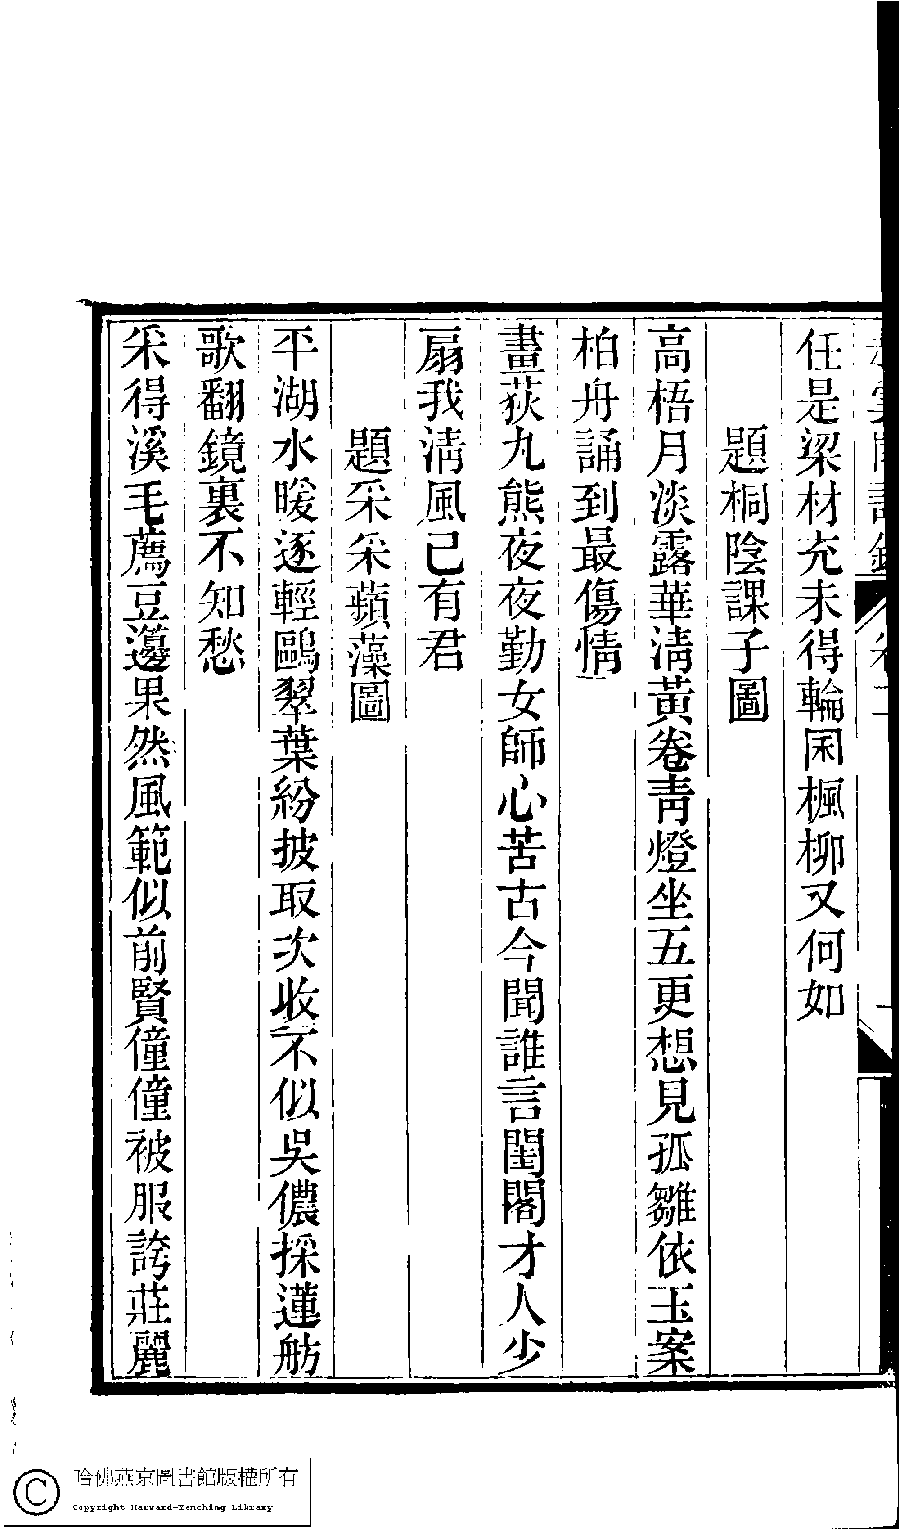 任是梁材充未得輪囷楓柳又何如
題桐陰課子圖
高梧月淡露華淸黃卷靑燈坐五更想見孤雛依玉案
柏舟誦到最傷情
畫荻丸熊夜夜勤女師心苦古今聞誰言閨閣才人少
扇我淸風已有君
題采采蘋藻圖
平湖水暖逐輕鷗翠葉紛披取次收不似吳儂採蓮舫
歌翻鏡裏不知愁
采得溪毛薦豆籩果然風範似前賢僮僮被服誇莊麗
哈佛燕京圖書館版權所有
Copyright Harvard-Yenching Library